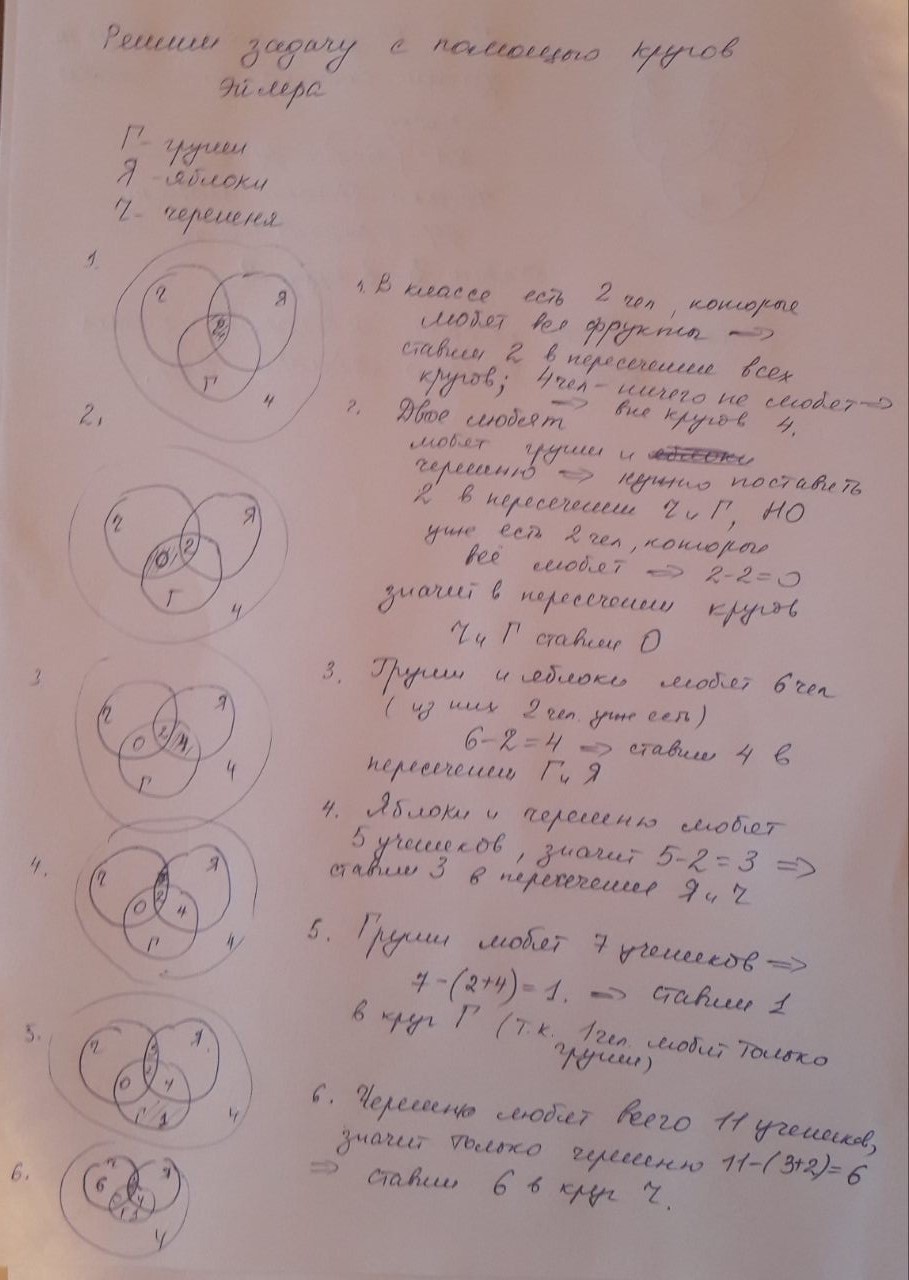 Решим задачу с помощью кругов
Эйлера
Г- груши
Я - яблоки
Ч- черешня
1.
Ч
Я
2
Г
4
1. В классе есть 2 чел, которые
любят все фрукты =>
ставим 2 в пересечение всех
кругов; 4чел - ничего не любят =>
=> вне кругов 4.
2.
Ч
Я
0
2
Г
4
2. Двое любят
любят груши и яблоки
черешню => нужно поставить
2 в пересечении Ч и Г, НО
уже есть 2 чел, которые
всё любят => 2-2=0
значит в пересечении кругов
Ч и Г ставим 0
3
Ч
Я
0
2
4
Г
4
3. Груши и яблоки любят 6 чел
(из них 2 чел. уже есть)
6-2=4 => ставим 4 в
пересечении Г и Я
4.
Ч
Я
2
0
4
Г
4
4. Яблоки и черешню любят
5 учеников, значит 5-2=3 =>
ставим 3 в пересечение Я и Ч
5.
Ч
Я
0
4
Г
1
4
5. Груши любят 7 учеников =>
7-(2+4)=1. => ставим 1
в круг Г (т.к. 1чел. любит только
груши)
6.
Ч
6
Я
4
6. Черешню любят всего 11 учеников,
значит только черешню 11-(3+2)=6
=> ставим 6 в круг Ч.